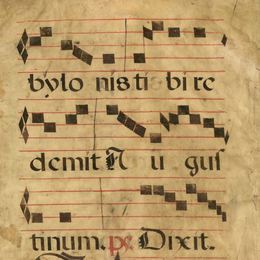 bylo nis ti bi re
demit A u guſ
tinum. ps Dixit.